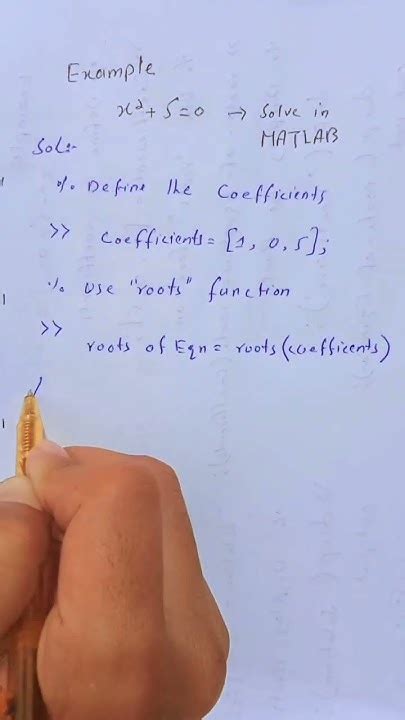 Example
x²+5=0 → Solve in
MATLAB
Sol:-
% Define the Coefficients
>> Coefficients = [1, 0, 5];
% use "roots" function
>>
roots of Eqn = roots(coefficents)